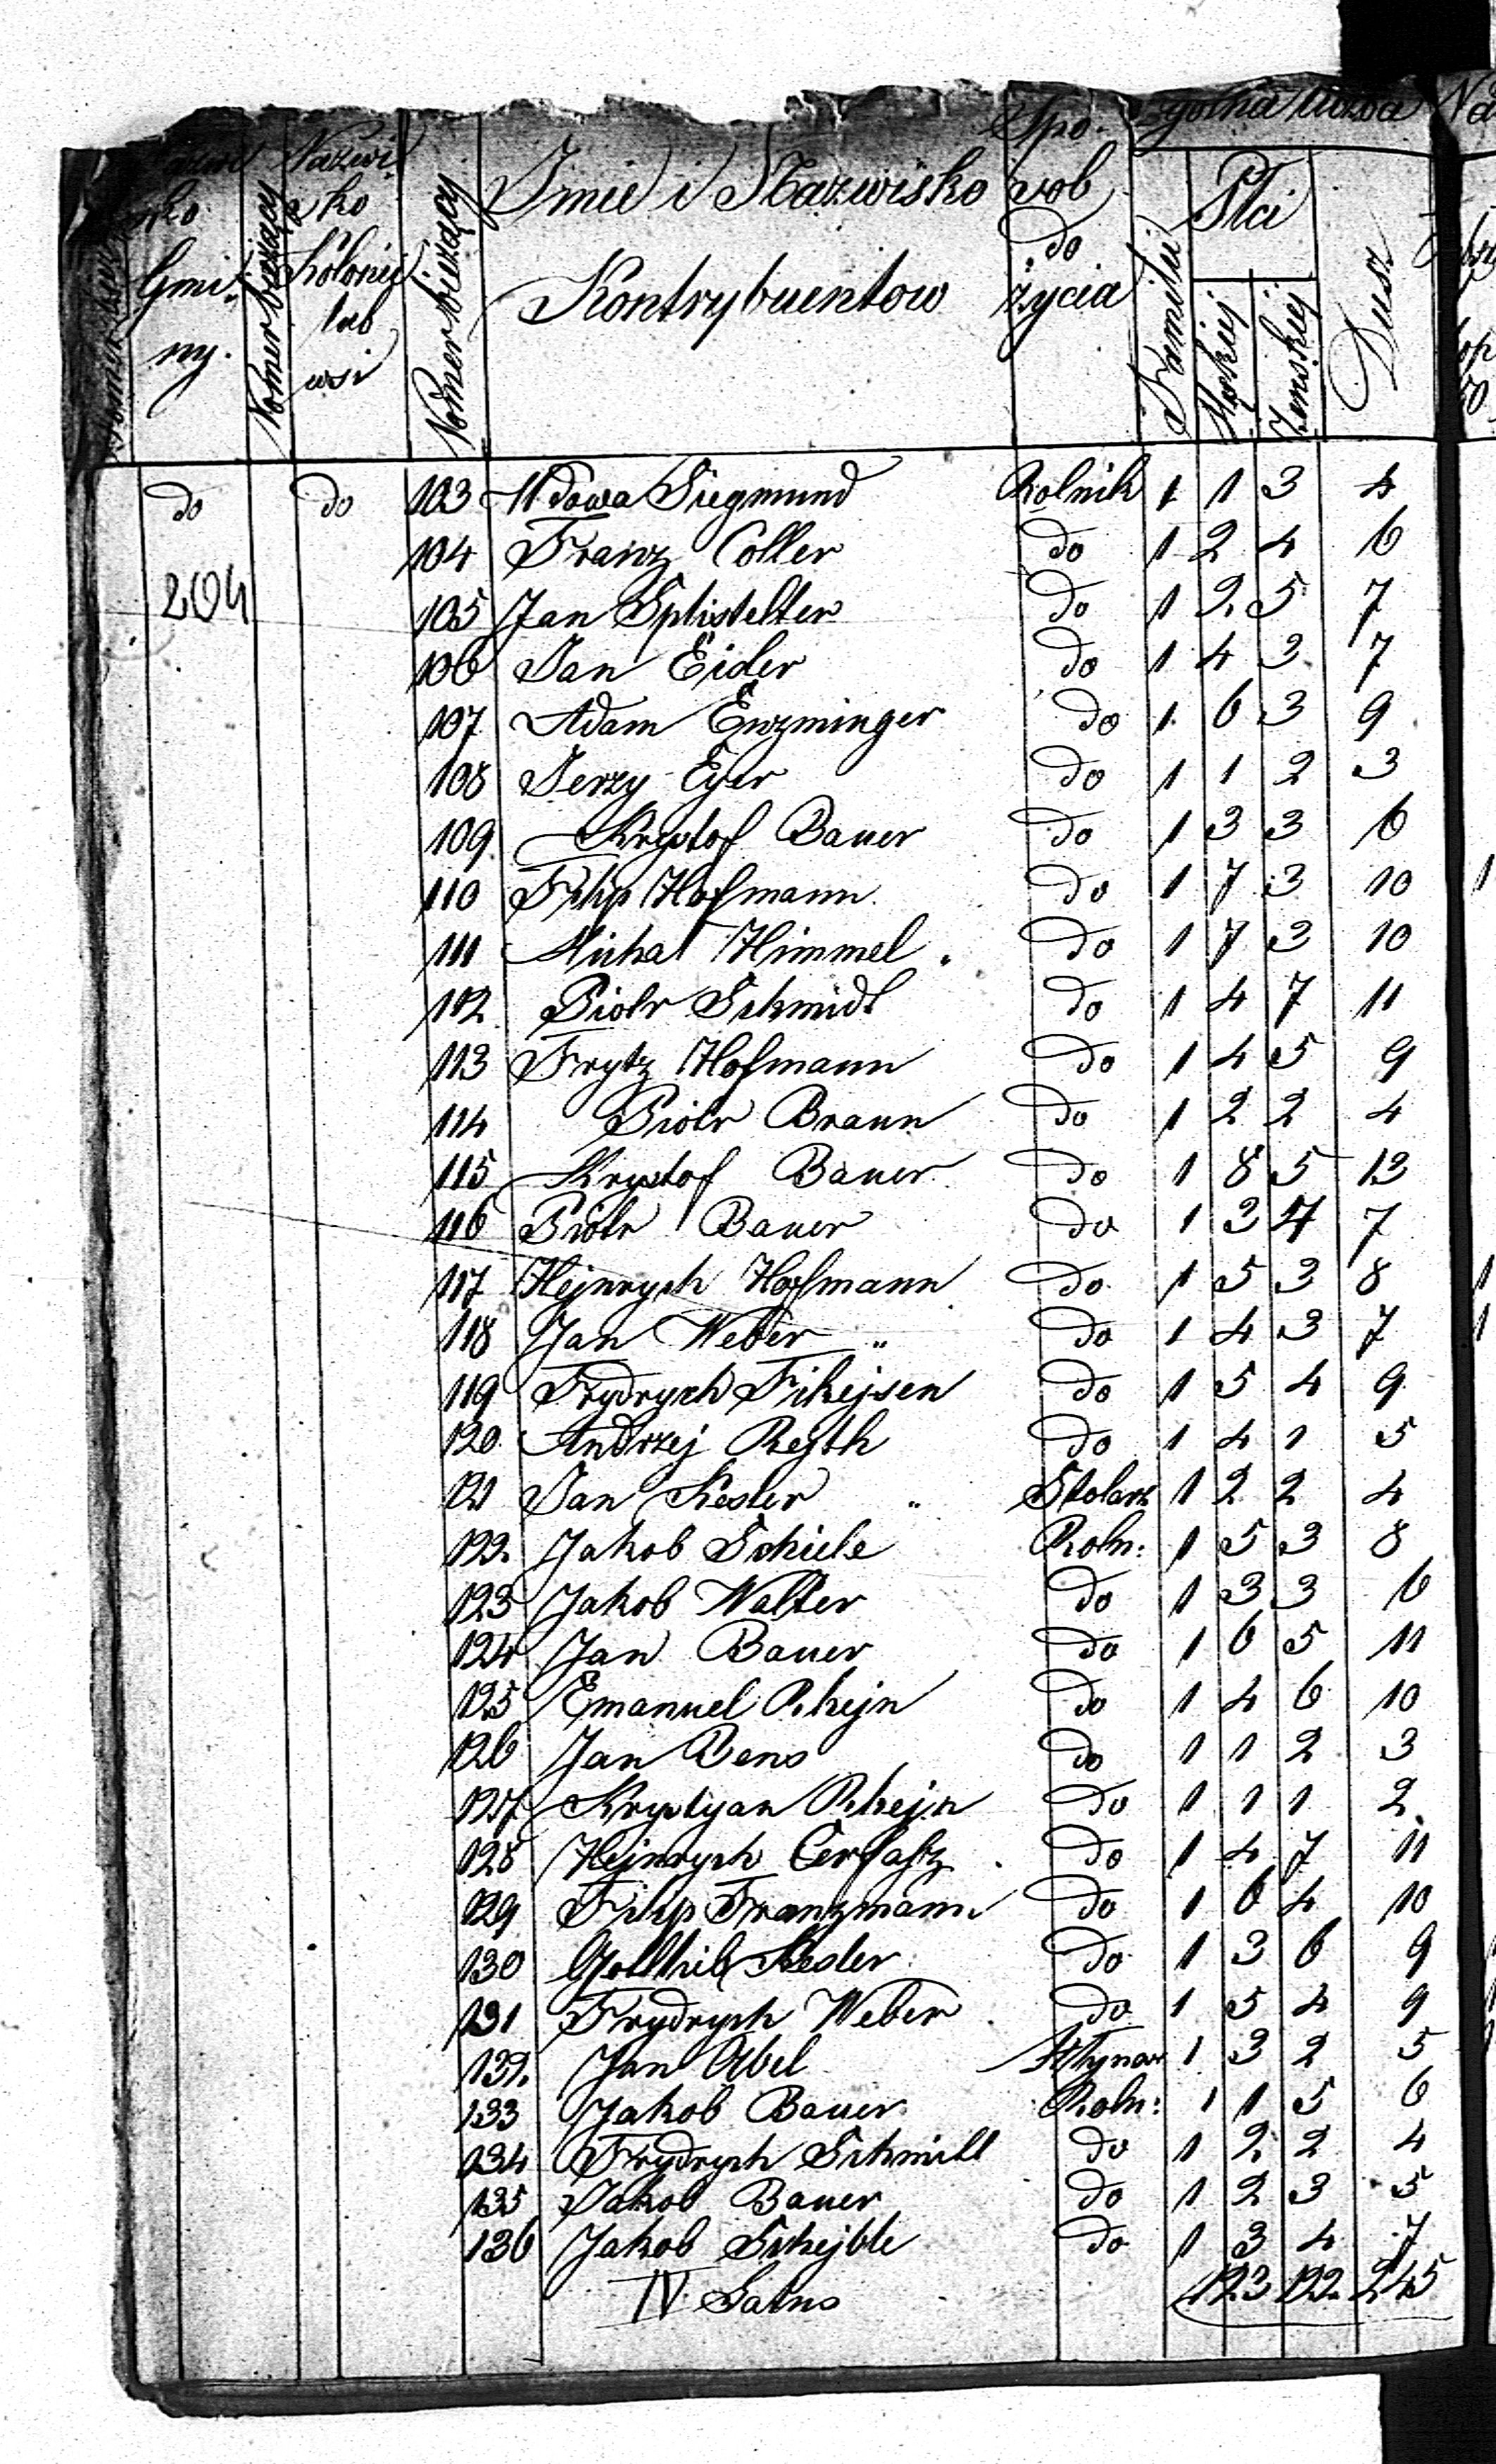 Spo-
Imie i Nazwisko sob
Nazwi-
sko
Kolonij
lub
wsi
Gmi-
ny.
Nomer bieżący
Nomer bieżący
Kontrybuentow
do
życia
Familii
Płci
Męskiej
Żenskiej
Dusz
do do 103 Wdowa Siegmund Rolnik 1 1 3 4
104 Franz Coller do 1 2 4 6
204
105 Jan Sphistelter do 1 2 5 7
106 Jan Eider do 1 4 3 7
107 Adam Enzminger do 1 6 3 9
108 Jerzy Eyer do 1 1 2 3
109 Krystof Bauer do 1 3 3 6
110 Filip Hofmann do 1 7 3 10
111 Michał Himmel do 1 7 3 10
112 Piotr Schmidt do 1 4 7 11
113 Frytz Hofmann do 1 4 5 9
114 Piotr Braun do 1 2 2 4
115 Krystof Bauer do 1 8 5 13
116 Piotr Bauer do 1 3 4 7
117 Hejnrych Hofmann do 1 5 3 8
118 Jan Weber do 1 4 3 7
119 Frydrych Fihejsen do 1 5 4 9
120 Andrzej Rejth do 1 4 1 5
121 Jan Kesler Stolarz 1 2 2 4
122 Jakob Schiele Roln: 1 5 3 8
123 Jakob Walter do 1 3 3 6
124 Jan Bauer do 1 6 5 11
125 Emanuel Rhejn do 1 4 6 10
126 Jan Bens do 1 1 2 3
127 Krystyan Rhejn do 1 1 1 2
128 Hejnrych do 1 4 7 11
129 Filip Franzmann do 1 6 4 10
130 Gottlieb Kesler do 1 3 6 9
131 Frydrych Weber do 1 5 4 9
132 Jan Abel Młynar 1 3 2 5
133 Jakob Bauer Roln: 1 1 5 6
134 Frydrych Schmitt do 1 2 2 4
135 Jakob Bauer do 1 2 3 5
136 Jakob Schejble do 1 3 4 7
IV Latus 123 122 245